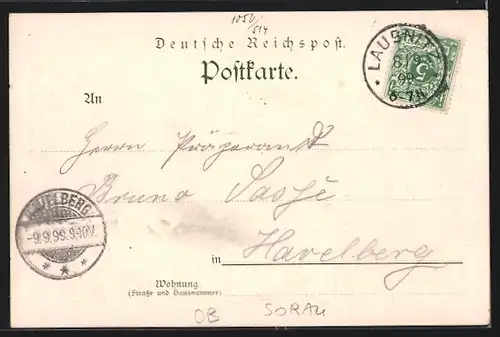 1050/
514
Deutsche Reichspost.
Postkarte.
LAUBNITZ
8/9
99
6-7N.
5
An
Herrn Präparandt
Bruno
in Havelberg
HAVELBERG
-9.9.99.9-10V.
Wohnung
(Straße und Hausnummer)
OB SORAU